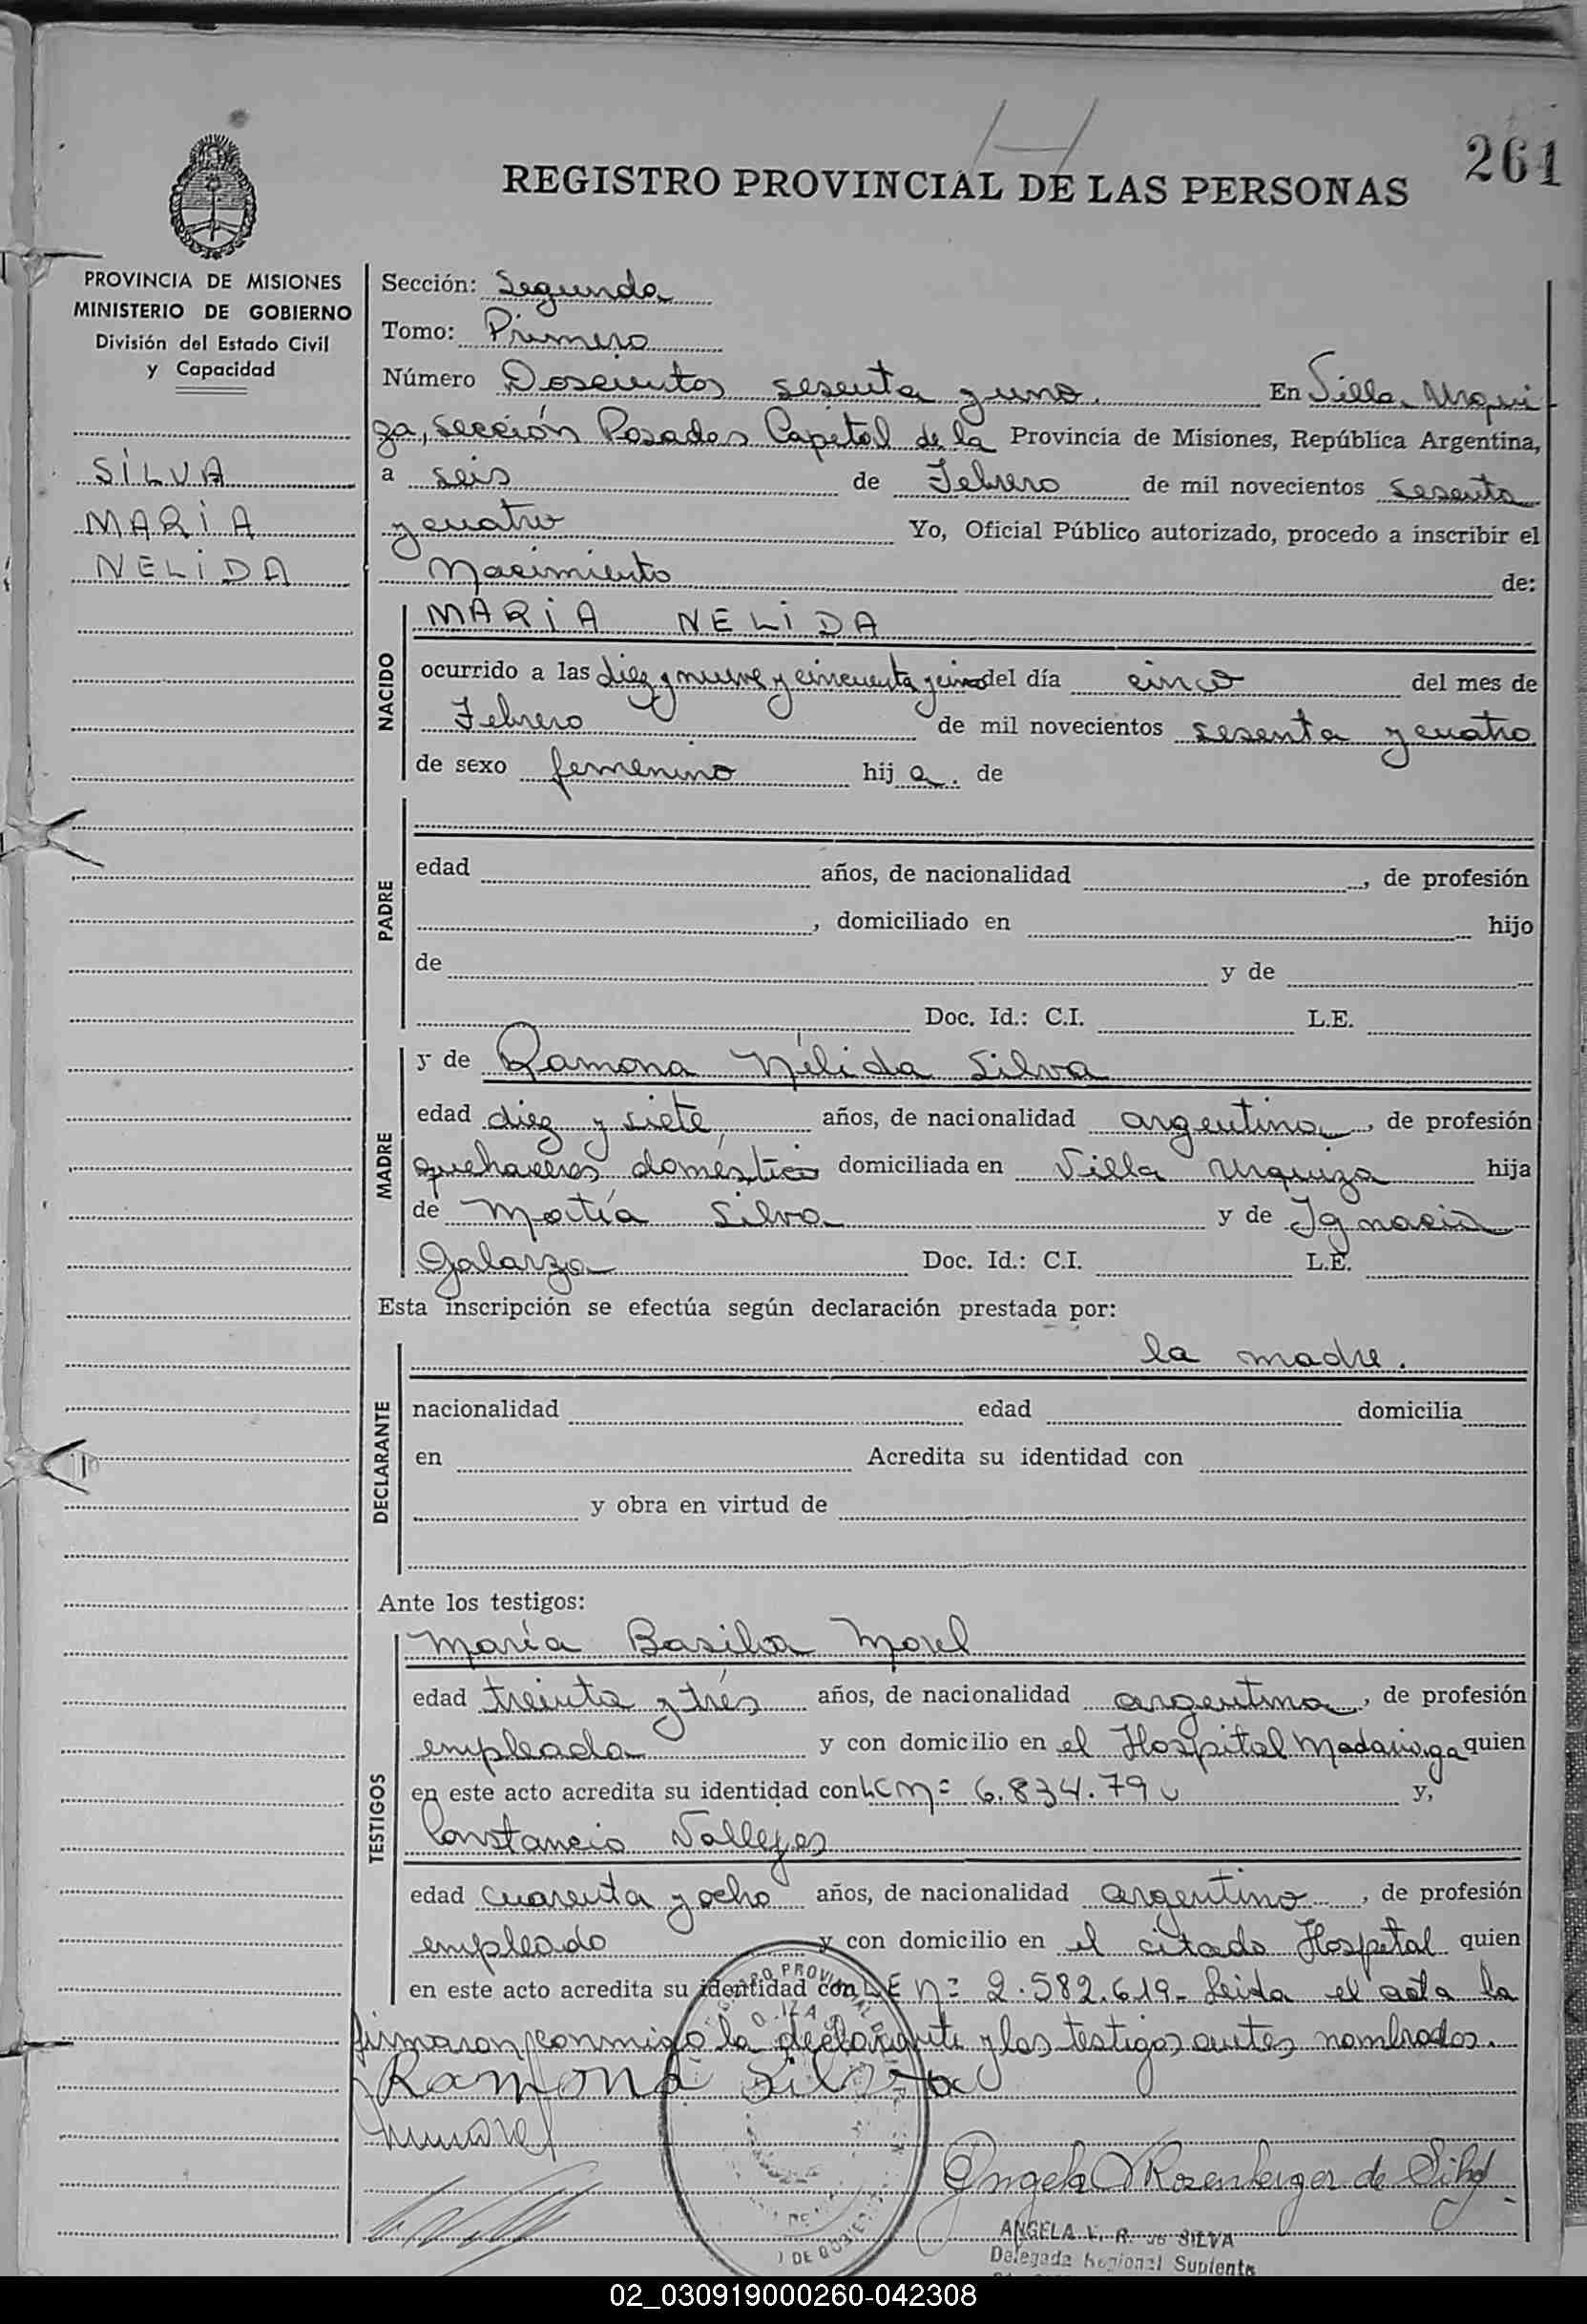 261
REGISTRO PROVINCIAL DE LAS PERSONAS
PROVINCIA DE MISIONES
MINISTERIO DE GOBIERNO
División del Estado Civil
y Capacidad
SILVA
MARIA
NELIDA
Sección: Segunda
Tomo: Primero
Número Doscientos sesenta y uno. En Villa Urqui
za, Sección Posadas Capital de la Provincia de Misiones, República Argentina,
a seis de Febrero de mil novecientos sesenta
y cuatro Yo, Oficial Público autorizado, procedo a inscribir el
Nacimiento de:
NACIDO
MARIA NELIDA
ocurrido a las diez y nueve y cincuenta y cinco del día cinco del mes de
Febrero de mil novecientos sesenta y cuatro
de sexo femenino hij a. de
PADRE
edad años, de nacionalidad , de profesión
, domiciliado en hijo
de y de
Doc. Id.: C.I. L.E.
MADRE
y de Ramona Nélida Silva
edad diez y siete, años, de nacionalidad argentina, de profesión
quehaceres doméstico domiciliada en Villa Urquiza hija
de Matía Silva y de Ignacia
Galarza Doc. Id.: C.I. L.E.
Esta inscripción se efectúa según declaración prestada por:
DECLARANTE
la madre.
nacionalidad edad domicilia
en Acredita su identidad con
y obra en virtud de
Ante los testigos:
TESTIGOS
María Basilia Morel
edad treinta y trés años, de nacionalidad argentina, de profesión
empleada y con domicilio en el Hospital Madariaga quien
en este acto acredita su identidad con LC Nº 6.834.790 y,
Constancio Vallejos
edad cuarenta y ocho años, de nacionalidad argentino, de profesión
empleado y con domicilio en el citado Hospital quien
en este acto acredita su identidad con LE Nº 2.582.619- Leida el acta la
firmaron conmigo la declarante y los testigos antes nombrados.
Ramona Silva
Angela V Rosenberger de Silva
ANGELA V. R. de SILVA
Delegada Regional Suplente
02_030919000260-042308